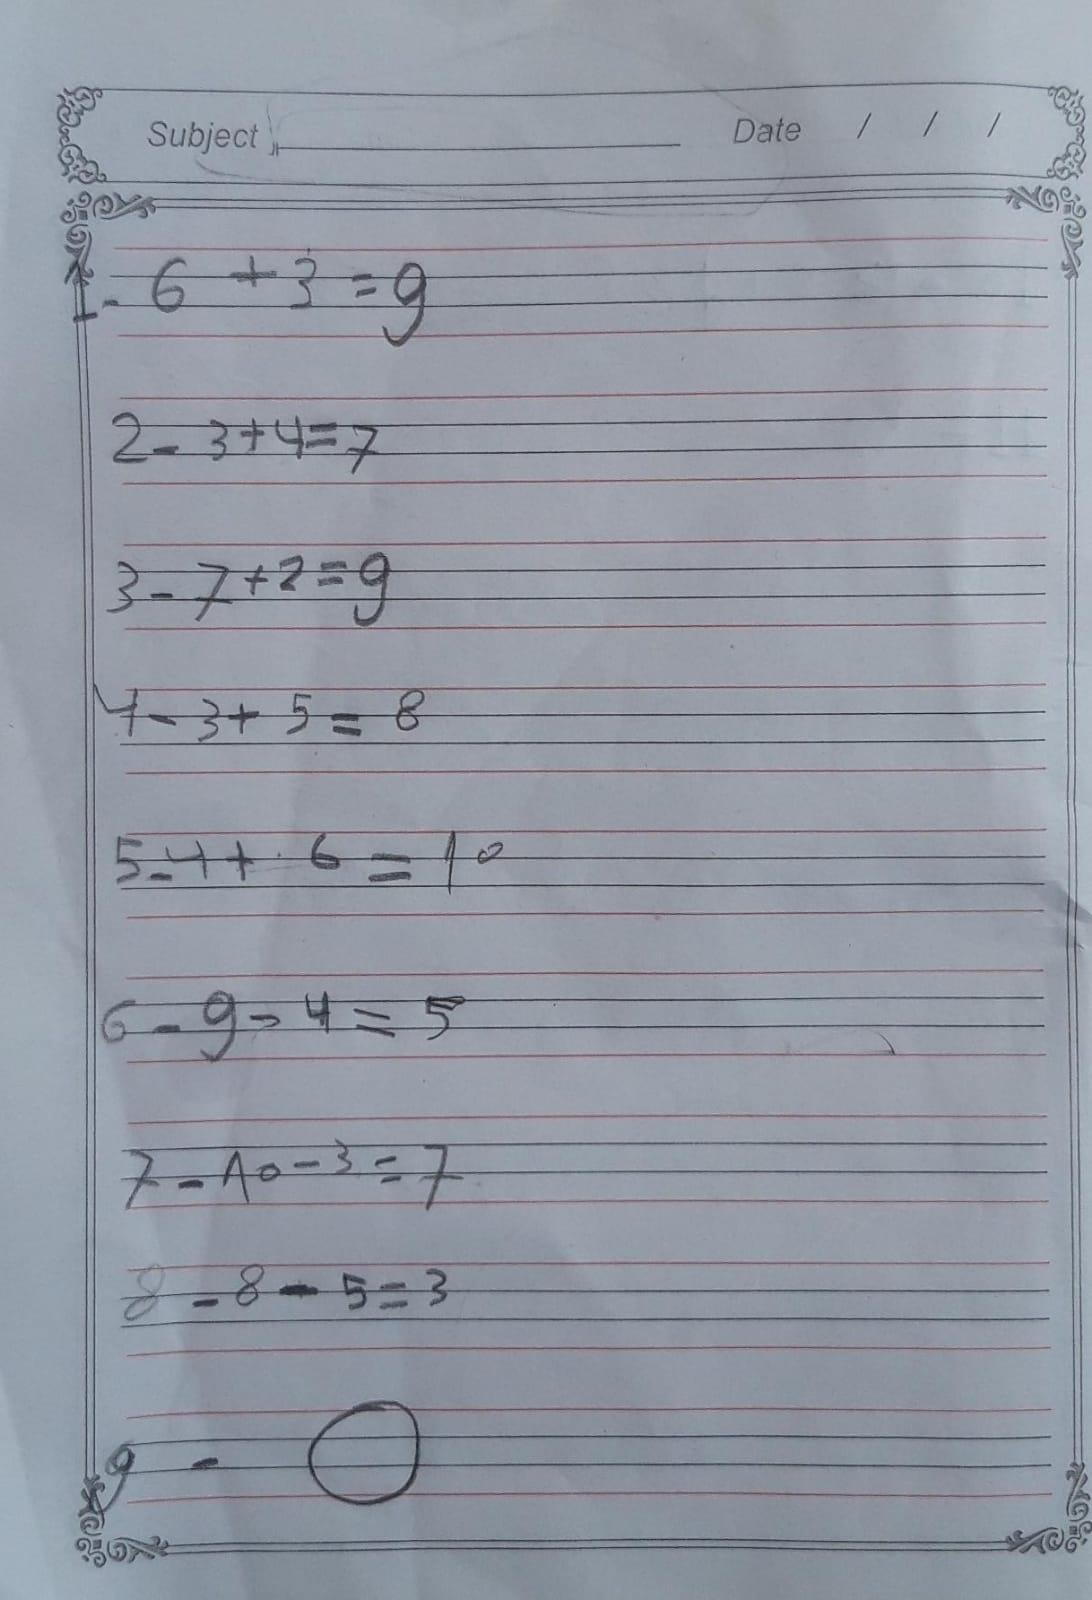 Subject Date / / /
1- 6 + 3 = 9
2- 3+4=7
3- 7+2=9
4- 3+ 5 = 8
5-4+ 6 = 10
6 - 9 - 4 = 5
7 - 10 - 3 = 7
8 - 8 - 5 = 3
9 -